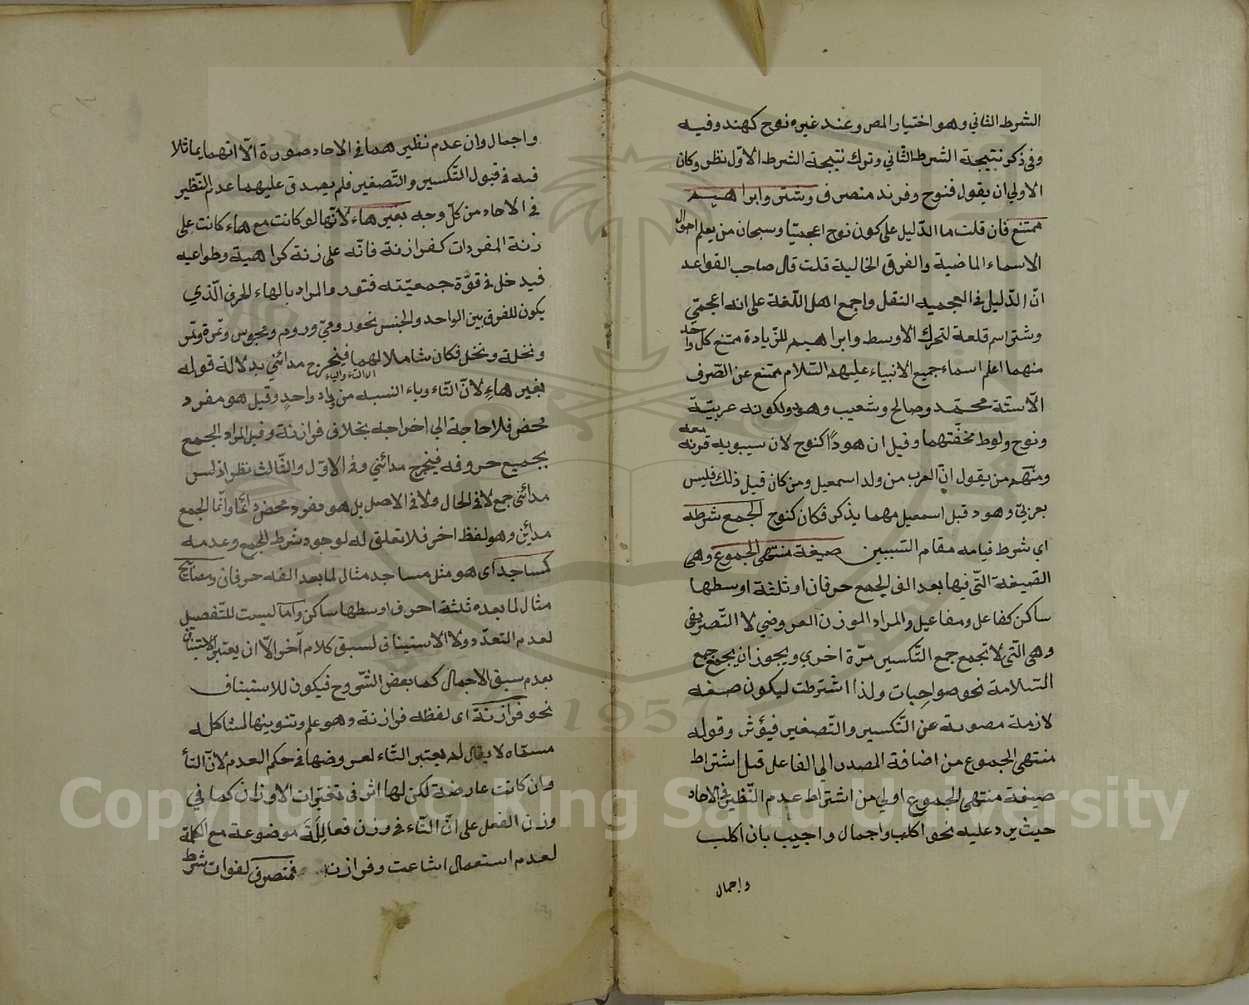 الشرط الثاني وهو اختيار المص وعند غيره نوح كهند وفيه
وفي ذكر نتيجة الشرط الثاني وترك نتيجة الشرط الاول نظر وكان
الاولي ان يقول فنوح وفرند منصرف وشتر وابراهيم
ممتنع فان قلت ما الدليل على كون نوح اعجميا وسبحان من يعلم احوال
الاسماء الماضية والفرق الخالية قلت قال صاحب القواعد
ان الدليل في العجمية النقل واجمع اهل اللغة على انه اعجمي
وشتر اسم قلعة لتحرك الاوسط وابراهيم للزيادة ممتنع كل واحد
منهما اعلم اسماء جميع الانبياء عليهم السلام ممتنع عن الصرف
الا ستة محمد وصالح وشعيب وهود لكونه عربية
ونوح ولوط لخفتهما وقيل ان هودا كنوح لان سيبويه قرنه معه
ومنهم من يقول ان العرب من ولد اسمعيل ومن كان قبل ذلك فليس
بعربي وهود قبل اسمعيل مهما يذكر فكان كنوح الجمع شرطه
اي شرط قيامه مقام السببين صيغة منتهى الجموع وهي
الصيغة التي فيها بعد الف الجمع حرفان او ثلثة اوسطها
ساكن كفاعل ومفاعيل والمراد الموزن العروضي لا التصريفي
وهي التي لا تجمع جمع التكسير مرة اخري ويجوز ان يجمع جمع
السلامة نحو صواحبات ولذا اشترطت ليكون صيغه
لازمة مصونة عن التكسير والتصغير فيؤثر وقوله
منتهى الجموع من اضافة المصدر الي الفاعل قيل اشتراط
صيغة منتهى الجموع اولى من اشتراط عدم النظير في الاحاد
حيث يرد عليه نحو اكلب واجمال واجيب بان اكلب
واجمال
واجمال وان عدم نظيرهما في الاحاد صورة الا انهما يماثلا
فيه في قبول التكسير والتصغير فلم يصدق عليهما عدم النظير
في الاحاد من كل وجه بغير هاء لانها لو كانت مع هاء كانت على
زنة المفردات كفرازنة فانه على زنة كراهية وطواعيه
فيدخل في قوة جمعيته فتور والمراد بالهاء الحرف الذي
يكون للفرق بين الواحد والجنس نحو رومي وروم ومجوس وتمرة وتمر
ونخلة ونخل فكان شاملا لهما فيخرج مدائني بدلالة قوله
اي التاء والياء
بغير هاء لان التاء وياء النسبه من واد واحد وقيل هو مفرد
محض فلا حاجة الي اخراجه بخلاف فرازنة وقيل المراد الجمع
بجميع حروفه فيخرج مدائني وفي الاول والثالث نظر اذ ليس
مدائني جمع لا في الحال ولا في الاصل بل هو مفرد محض وانما الجمع
مدائن وهو لفظ اخر فلا تعلق له لوجود شرط الجمع وعدمه
كمساجد اي هو مثل مساجد مثال لما بعد الفه حرفان ومصابيح
مثال لما بعده ثلثة احرف اوسطها ساكن واما ليست للتفصيل
لعدم التعدد ولا الاستيناف لسبق كلام آخر الا ان يعتبر الاستيناف
بعدم سبق الاجمال كما بعض الشروح فيكون للاستيناف
نحو فرازنة اي لفظه فرازنة وهو علم وتنوينها لمشاكله
مسماه لا يقال لم يعتبر التاء لعروضها في حكم العدم لان التاء
وان كانت عارضة لكن لها اثر في تغيرات الاوزان كما في
وزن الفعل على ان التاء في وزن فعاللة موضوعة مع الكلمة
لعدم استعمال اشاعث وفرازن فمنصرف لفوات شرط